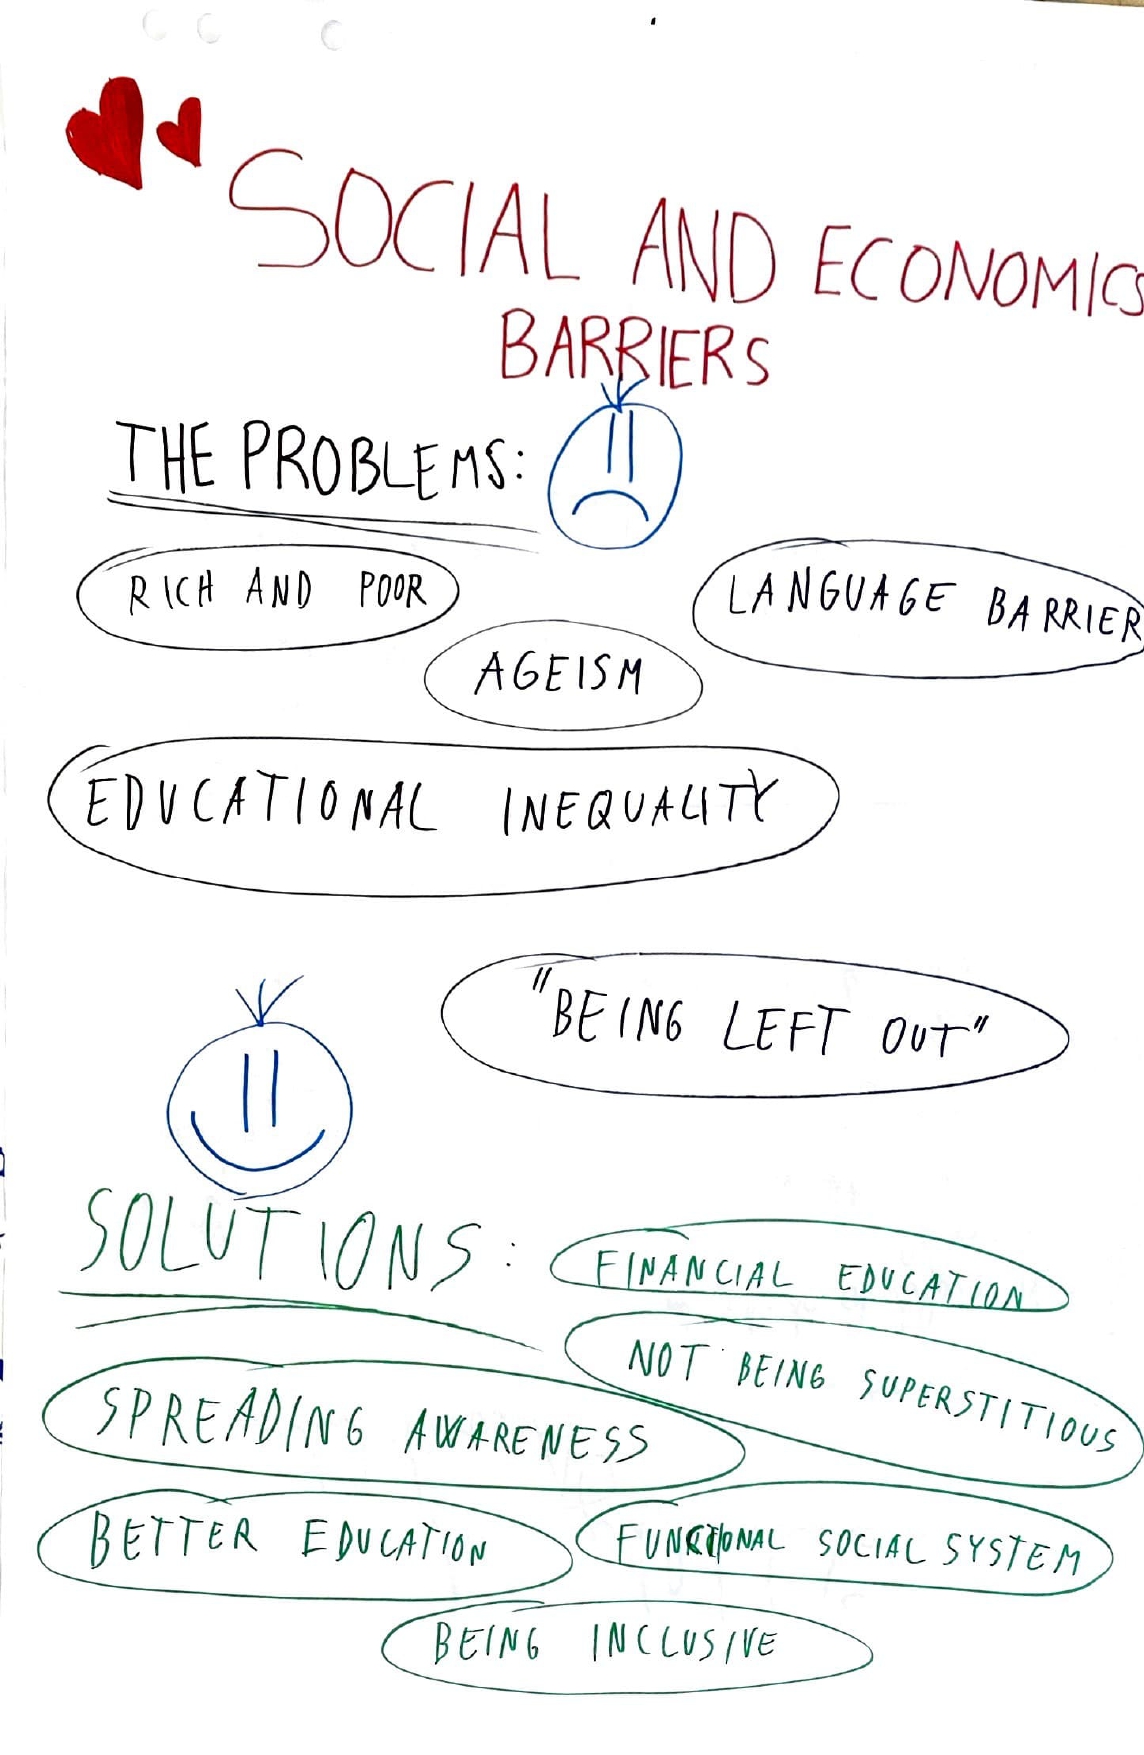 SOCIAL AND ECONOMICS
BARRIERS
THE PROBLEMS:
RICH AND POOR
LANGUAGE BARRIER
AGEISM
EDUCATIONAL INEQUALITY
"BEING LEFT OUT"
SOLUTIONS:
FINANCIAL EDUCATION
NOT BEING SUPERSTITIOUS
SPREADING AWARENESS
BETTER EDUCATION
FUNCTIONAL SOCIAL SYSTEM
BEING INCLUSIVE